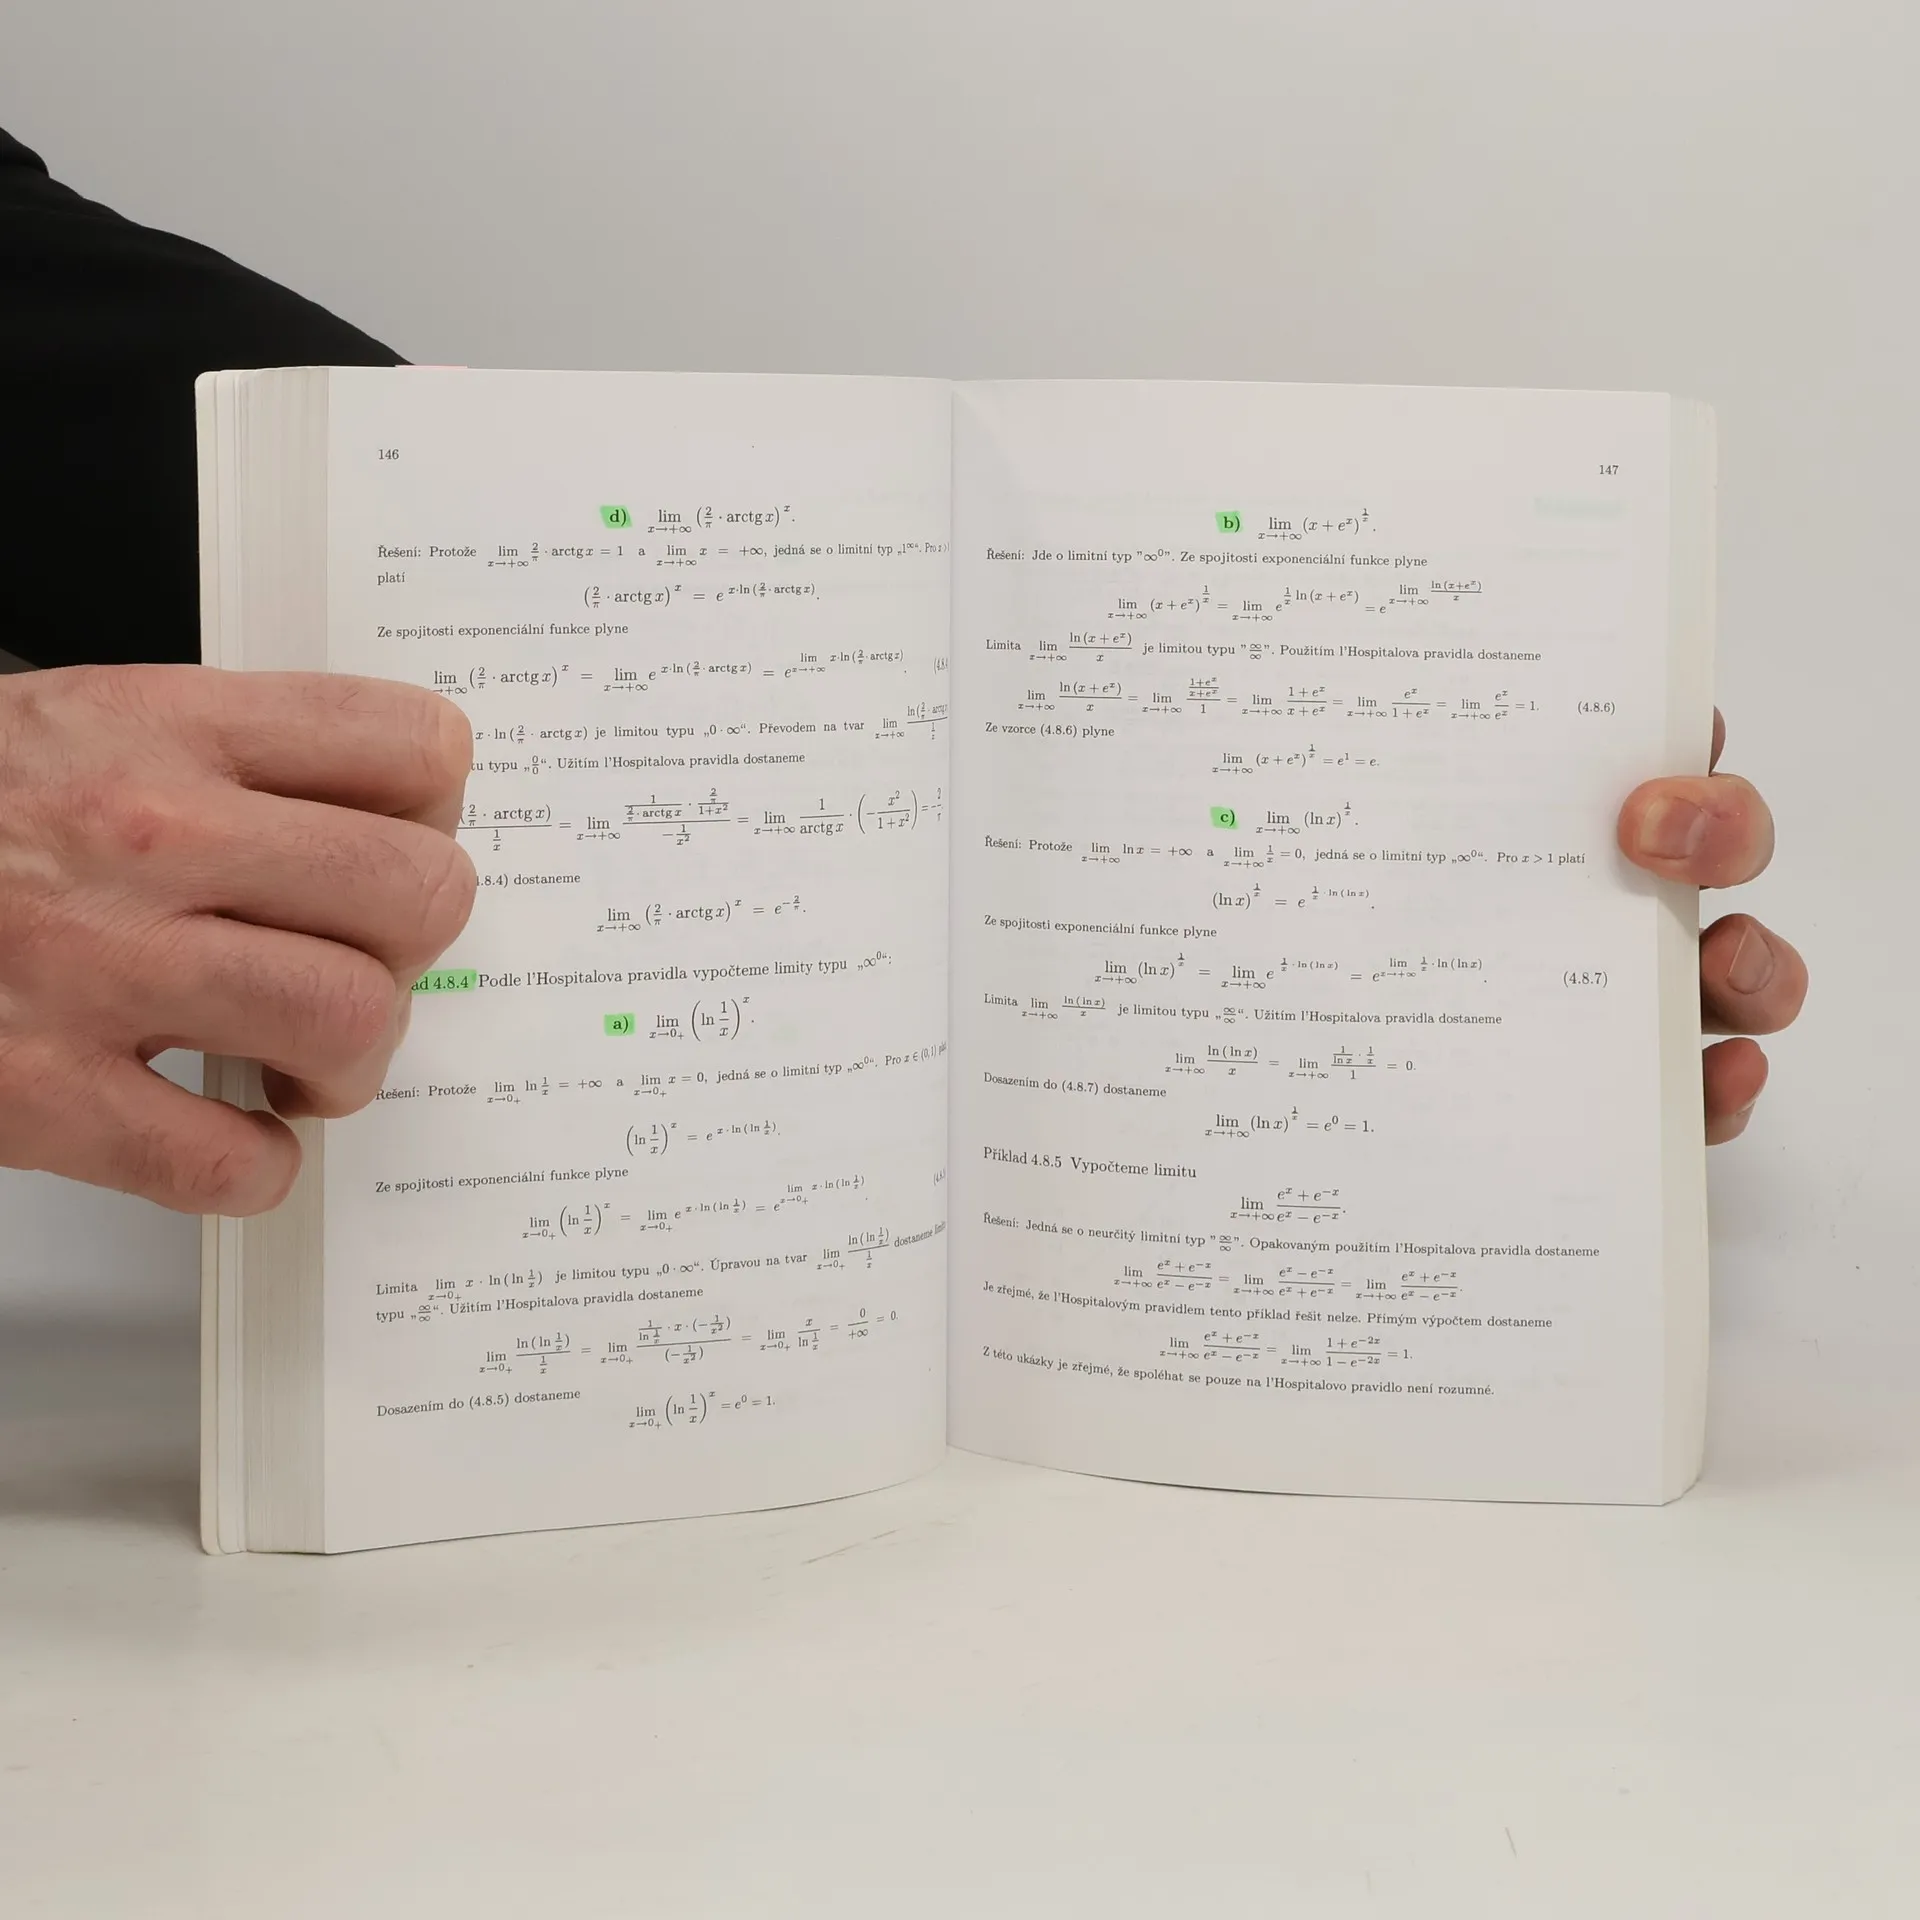 146
d) lim x→+∞ (2/π · arctg x)^x.
Řešení: Protože lim x→+∞ 2/π · arctg x = 1 a lim x→+∞ x = +∞, jedná se o limitní typ „1^∞“. Pro x >
platí
(2/π · arctg x)^x = e^(x·ln(2/π · arctg x)).
Ze spojitosti exponenciální funkce plyne
lim →+∞ (2/π · arctg x)^x = lim x→+∞ e^(x·ln(2/π · arctg x)) = e^(lim x→+∞ x·ln(2/π · arctg x)).
x · ln(2/π · arctg x) je limitou typu „0 · ∞“. Převodem na tvar lim x→+∞ ln(2/π · arctg x / 1/x
typu „0/0“. Užitím l'Hospitalova pravidla dostaneme
(2/π · arctg x) / (1/x) = lim x→+∞ (1/(2/π · arctg x) · (2/π)/(1+x²)) / (−1/x²) = lim x→+∞ 1/arctg x · (−x²/(1+x²)) = −2/
.8.4) dostaneme
lim x→+∞ (2/π · arctg x)^x = e^(−2/π).
ad 4.8.4 Podle l'Hospitalova pravidla vypočteme limity typu „∞^0“:
a) lim x→0+ (ln 1/x)^x.
Řešení: Protože lim x→0+ ln 1/x = +∞ a lim x→0+ x = 0, jedná se o limitní typ „∞^0“. Pro x ∈ (0, 1)
(ln 1/x)^x = e^(x·ln(ln 1/x)).
Ze spojitosti exponenciální funkce plyne
lim x→0+ (ln 1/x)^x = lim x→0+ e^(x·ln(ln 1/x)) = e^(lim x→0+ x·ln(ln 1/x)).
Limita lim x→0+ x · ln(ln 1/x) je limitou typu „0 · ∞“. Úpravou na tvar lim x→0+ ln(ln 1/x) / (1/x) dostaneme
typu „∞/∞“. Užitím l'Hospitalova pravidla dostaneme
lim x→0+ ln(ln 1/x) / (1/x) = lim x→0+ (1/(ln 1/x) · x · (−1/x²)) / (−1/x²) = lim x→0+ x/(ln 1/x) = 0/+∞ = 0.
Dosazením do (4.8.5) dostaneme
lim x→0+ (ln 1/x)^x = e^0 = 1.
147
b) lim x→+∞ (x + e^x)^(1/x).
Řešení: Jde o limitní typ "∞^0". Ze spojitosti exponenciální funkce plyne
lim x→+∞ (x + e^x)^(1/x) = lim x→+∞ e^(1/x ln(x + e^x)) = e^(lim x→+∞ ln(x+e^x)/x)
Limita lim x→+∞ ln(x + e^x)/x je limitou typu "∞/∞". Použitím l'Hospitalova pravidla dostaneme
lim x→+∞ ln(x + e^x)/x = lim x→+∞ ((1+e^x)/(x+e^x))/1 = lim x→+∞ (1 + e^x)/(x + e^x) = lim x→+∞ e^x/(1 + e^x) = lim x→+∞ e^x/e^x = 1. (4.8.6)
Ze vzorce (4.8.6) plyne
lim x→+∞ (x + e^x)^(1/x) = e^1 = e.
c) lim x→+∞ (ln x)^(1/x).
Řešení: Protože lim x→+∞ ln x = +∞ a lim x→+∞ 1/x = 0, jedná se o limitní typ „∞^0“. Pro x > 1 platí
(ln x)^(1/x) = e^(1/x · ln(ln x)).
Ze spojitosti exponenciální funkce plyne
lim x→+∞ (ln x)^(1/x) = lim x→+∞ e^(1/x · ln(ln x)) = e^(lim x→+∞ 1/x · ln(ln x)). (4.8.7)
Limita lim x→+∞ ln(ln x)/x je limitou typu „∞/∞“. Užitím l'Hospitalova pravidla dostaneme
lim x→+∞ ln(ln x)/x = lim x→+∞ (1/ln x · 1/x)/1 = 0.
Dosazením do (4.8.7) dostaneme
lim x→+∞ (ln x)^(1/x) = e^0 = 1.
Příklad 4.8.5 Vypočteme limitu
lim x→+∞ (e^x + e^−x)/(e^x − e^−x).
Řešení: Jedná se o neurčitý limitní typ "∞/∞". Opakovaným použitím l'Hospitalova pravidla dostaneme
lim x→+∞ (e^x + e^−x)/(e^x − e^−x) = lim x→+∞ (e^x − e^−x)/(e^x + e^−x) = lim x→+∞ (e^x + e^−x)/(e^x − e^−x).
Je zřejmé, že l'Hospitalovým pravidlem tento příklad řešit nelze. Přímým výpočtem dostaneme
lim x→+∞ (e^x + e^−x)/(e^x − e^−x) = lim x→+∞ (1 + e^−2x)/(1 − e^−2x) = 1.
Z této ukázky je zřejmé, že spoléhat se pouze na l'Hospitalovo pravidlo není rozumné.